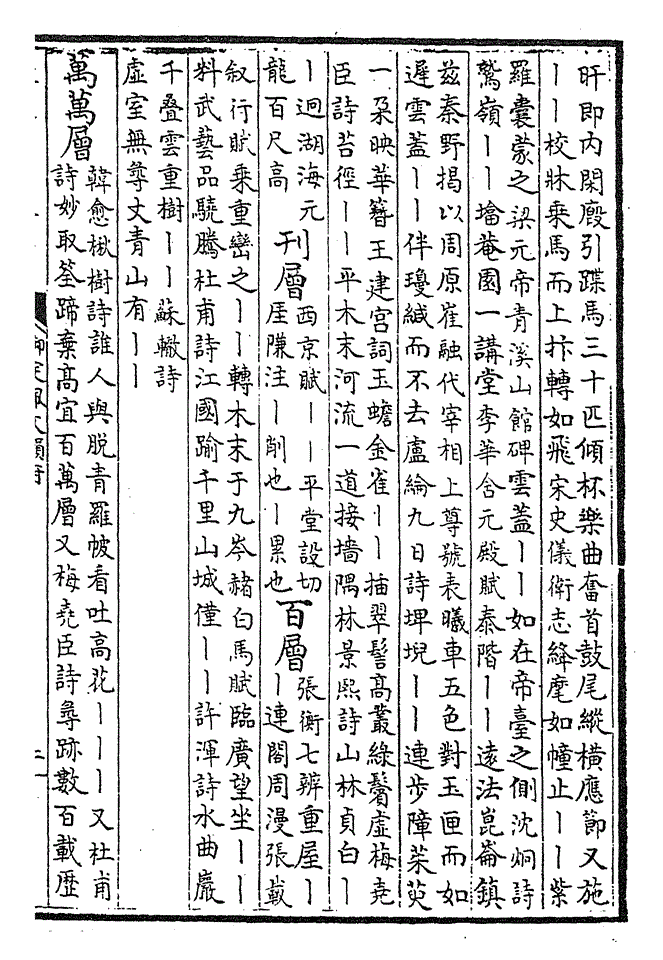 旰即内閑廄引蹀馬三十匹傾杯樂曲奮首鼓尾縱橫應節又施
丨丨校牀乗馬而上抃轉如飛宋史儀衛志絳麾如幢止丨丨紫
羅囊蒙之梁元帝青溪山館碑雲蓋丨丨如在帝臺之側沈炯詩
鷲嶺丨丨墖菴園一講堂李華含元殿賦泰階丨丨逺法崑崙鎮
兹秦野揭以周原崔融代宰相上尊號表曦車五色對玉匣而如
遲雲蓋丨丨伴瓊緘而不去盧綸九日詩埤堄丨丨連步障茱萸
一朶映華簪王建宫詞玉蟾金雀丨丨插翠髻髙叢緑鬢虚梅堯
臣詩苔徑丨丨平木末河流一道接墻隅林景熙詩山林貞白丨
丨迥湖海元
龍百尺高
刋層
西京賦丨丨平堂設切
厓隒注丨削也丨累也
百層
張衡七辨重屋丨
丨連閣周漫張載
叙行賦乗重巒之丨丨轉木末于九岑赭白馬賦臨廣望坐丨丨
料武藝品驍騰杜甫詩江國踰千里山城僅丨丨許渾詩水曲巖
千叠雲重樹丨丨蘇轍詩
虚室無尊丈青山有丨丨
萬萬層
韓愈楸樹詩誰人與脱青羅帔看吐高花丨丨丨又杜甫
詩妙取筌蹄棄髙宜百萬層又梅堯臣詩尋跡數百載歴